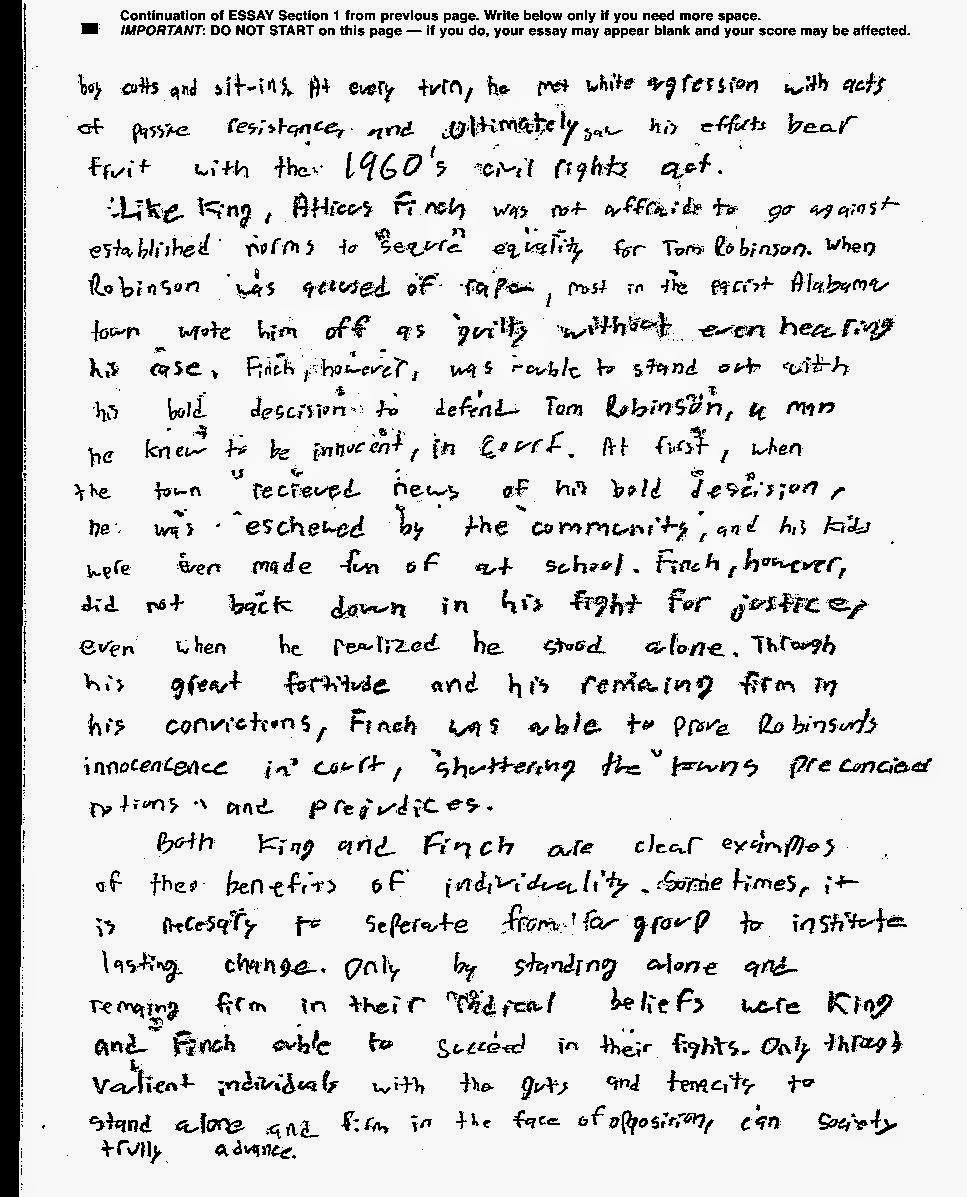 Continuation of ESSAY Section 1 from previous page. Write below only if you need more space.
IMPORTANT: DO NOT START on this page — if you do, your essay may appear blank and your score may be affected.
boy cotts and sit-ins. At every turn, he met white agression with acts
of passive resistance, and ultimately saw his efforts bear
fruit with the 1960's civil rights act.
Like King, Atticus Finch was not affraide to go against
established norms to secure equality for Tom Robinson. When
Robinson was accused of rape, most in the racist Alabama
town wrote him off as guilty without even hearing
his case. Finch, however, was able to stand out with
his bold descision to defend Tom Robinson, a man
he knew to be innocent, in court. At first, when
the town recieved news of his bold descision,
he was eschewed by the community, and his kids
were even made fun of at school. Finch, however,
did not back down in his fight for justice,
even when he realized he stood alone. Through
his great fortitude and his remaing firm in
his convictions, Finch was able to prove Robinson's
innocencence in court, shattering the towns preconcieved
notions and prejudices.
Both King and Finch are clear examples
of the benefits of individuality. Sometimes, it
is necesary to seperate from group to institute
lasting change. Only by standing alone and
remaing firm in their radical beliefs were King
and Finch able to succeed in their fights. Only through
valient individuals with the guts and tenacity to
stand alone and firm in the face of opposition, can society
trully advance.